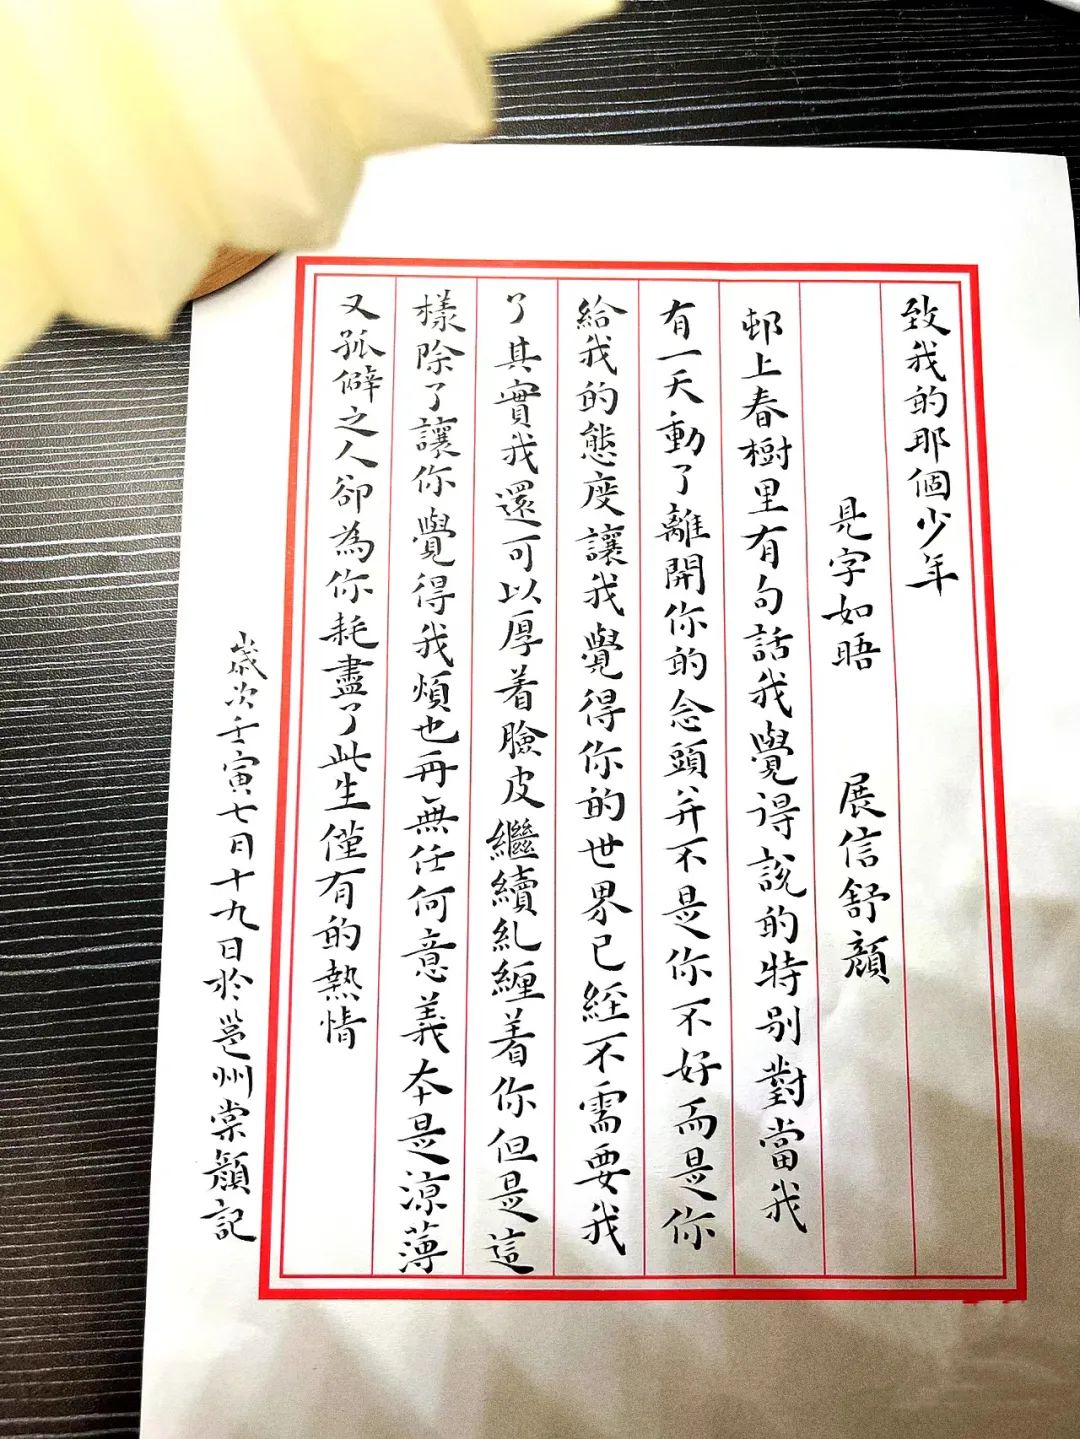 致我的那個少年
見字如晤 展信舒顏
邨上春樹里有句話我覺得説的特别對當我
有一天動了離開你的念頭并不是你不好而是你
給我的態度讓我覺得你的世界已經不需要我
了其實我還可以厚着臉皮繼續糺纏着你但是這
樣除了讓你覺得我煩也再無任何意義本是涼薄
又孤僻之人卻為你耗盡了此生僅有的熱情
歲次壬寅七月十九日於邕州棠顏記